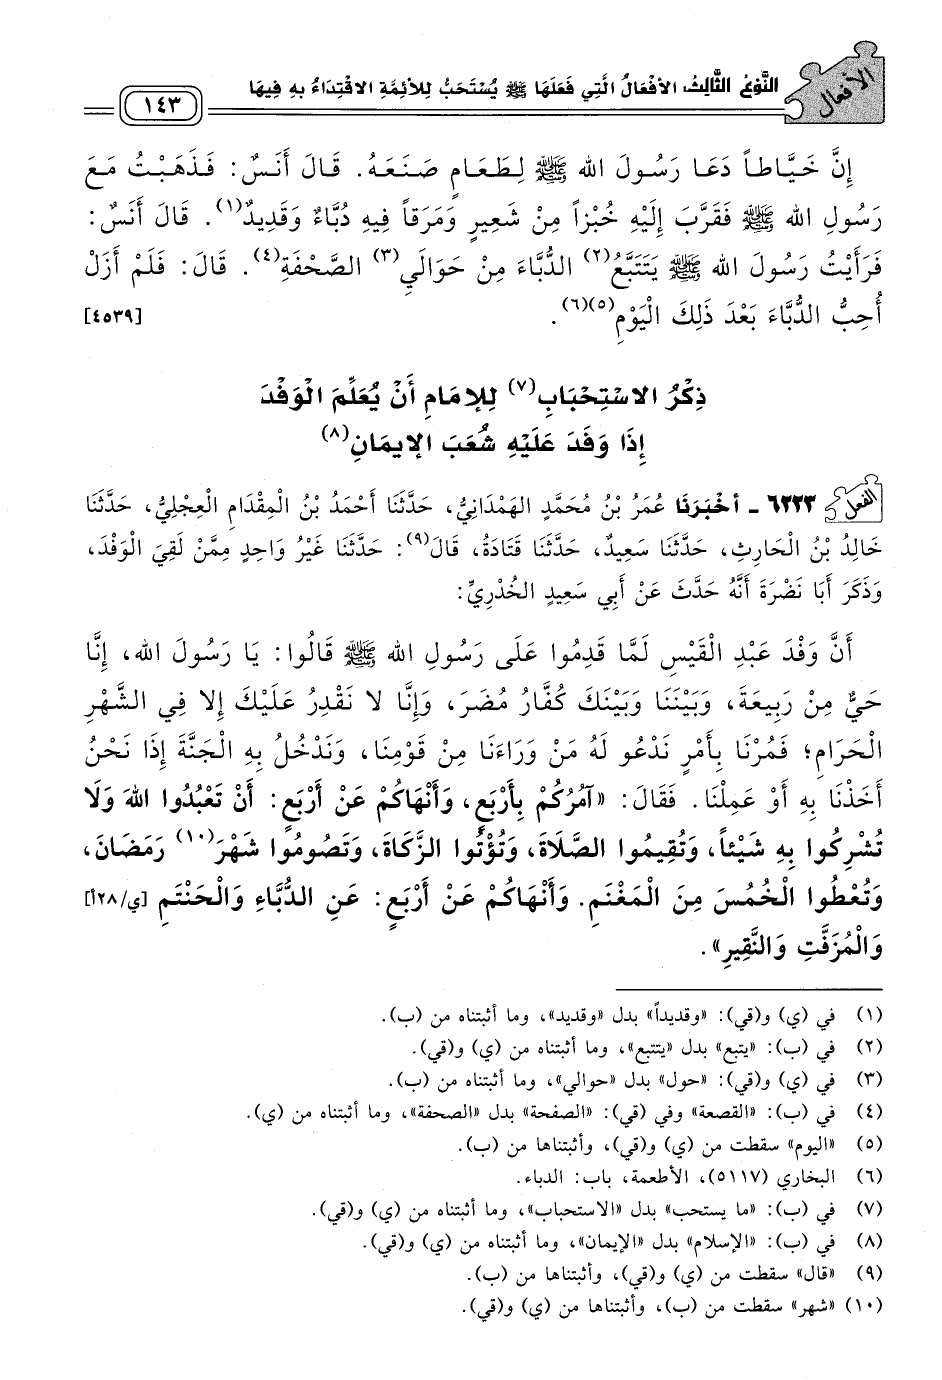 الأفعال
النَّوْعُ الثَّالِثُ: الأَفْعَالُ الَّتِي فَعَلَهَا ﷺ يُسْتَحَبُّ لِلأَئِمَّةِ الاقْتِدَاءُ بِهِ فِيهَا
١٤٣
إِنَّ خَيَّاطاً دَعَا رَسُولَ الله ﷺ لِطَعَامٍ صَنَعَهُ. قَالَ أَنَسٌ: فَذَهَبْتُ مَعَ
رَسُولِ الله ﷺ فَقَرَّبَ إِلَيْهِ خُبْزاً مِنْ شَعِيرٍ وَمَرَقاً فِيهِ دُبَّاءٌ وَقَدِيدٌ(١). قَالَ أَنَسٌ:
فَرَأَيْتُ رَسُولَ الله ﷺ يَتَتَبَّعُ(٢) الدُّبَّاءَ مِنْ حَوَالَيِ(٣) الصَّحْفَةِ(٤). قَالَ: فَلَمْ أَزَلْ
أُحِبُّ الدُّبَّاءَ بَعْدَ ذَلِكَ الْيَوْمِ(٥)(٦). [٤٥٣٩]
ذِكْرُ الاسْتِحْبَابِ(٧) لِلإِمَامِ أَنْ يُعَلِّمَ الْوَفْدَ
إِذَا وَفَدَ عَلَيْهِ شُعَبَ الإِيمَانِ(٨)
الفعل ٦٢٢٣ - أَخْبَرَنَا عُمَرُ بْنُ مُحَمَّدٍ الهَمْدَانِيُّ، حَدَّثَنَا أَحْمَدُ بْنُ الْمِقْدَامِ الْعِجْلِيُّ، حَدَّثَنَا
خَالِدُ بْنُ الْحَارِثِ، حَدَّثَنَا سَعِيدٌ، حَدَّثَنَا قَتَادَةُ، قَالَ(٩): حَدَّثَنَا غَيْرُ وَاحِدٍ مِمَّنْ لَقِيَ الْوَفْدَ،
وَذَكَرَ أَبَا نَضْرَةَ أَنَّهُ حَدَّثَ عَنْ أَبِي سَعِيدٍ الْخُدْرِيِّ:
أَنَّ وَفْدَ عَبْدِ الْقَيْسِ لَمَّا قَدِمُوا عَلَى رَسُولِ الله ﷺ قَالُوا: يَا رَسُولَ الله، إِنَّا
حَيٌّ مِنْ رَبِيعَةَ، وَبَيْنَنَا وَبَيْنَكَ كُفَّارُ مُضَرَ، وَإِنَّا لا نَقْدِرُ عَلَيْكَ إِلا فِي الشَّهْرِ
الْحَرَامِ؛ فَمُرْنَا بِأَمْرٍ نَدْعُو لَهُ مَنْ وَرَاءَنَا مِنْ قَوْمِنَا، وَنَدْخُلُ بِهِ الْجَنَّةَ إِذَا نَحْنُ
أَخَذْنَا بِهِ أَوْ عَمِلْنَا. فَقَالَ: «آمُرُكُمْ بِأَرْبَعٍ، وَأَنْهَاكُمْ عَنْ أَرْبَعٍ: أَنْ تَعْبُدُوا اللهَ وَلَا
تُشْرِكُوا بِهِ شَيْئاً، وَتُقِيمُوا الصَّلَاةَ، وَتُؤْتُوا الزَّكَاةَ، وَتَصُومُوا شَهْرَ(١٠) رَمَضَانَ،
وَتُعْطُوا الْخُمُسَ مِنَ الْمَغْنَمِ. وَأَنْهَاكُمْ عَنْ أَرْبَعٍ: عَنِ الدُّبَّاءِ وَالْحَنْتَمِ [ي/١٢٨أ]
وَالْمُزَفَّتِ وَالنَّقِيرِ».
(١) في (ي) و(قي): «وقديداً» بدل «وقديد»، وما أثبتناه من (ب).
(٢) في (ب): «يتبع» بدل «يتتبع»، وما أثبتناه من (ي) و(قي).
(٣) في (ي) و(قي): «حول» بدل «حوالي»، وما أثبتناه من (ب).
(٤) في (ب): «القصعة» وفي (قي): «الصفحة» بدل «الصحفة»، وما أثبتناه من (ي).
(٥) «اليوم» سقطت من (ي) و(قي)، وأثبتناها من (ب).
(٦) البخاري (٥١١٧)، الأطعمة، باب: الدباء.
(٧) في (ب): «ما يستحب» بدل «الاستحباب»، وما أثبتناه من (ي) و(قي).
(٨) في (ب): «الإسلام» بدل «الإيمان»، وما أثبتناه من (ي) و(قي).
(٩) «قال» سقطت من (ي) و(قي)، وأثبتناها من (ب).
(١٠) «شهر» سقطت من (ب)، وأثبتناها من (ي) و(قي).